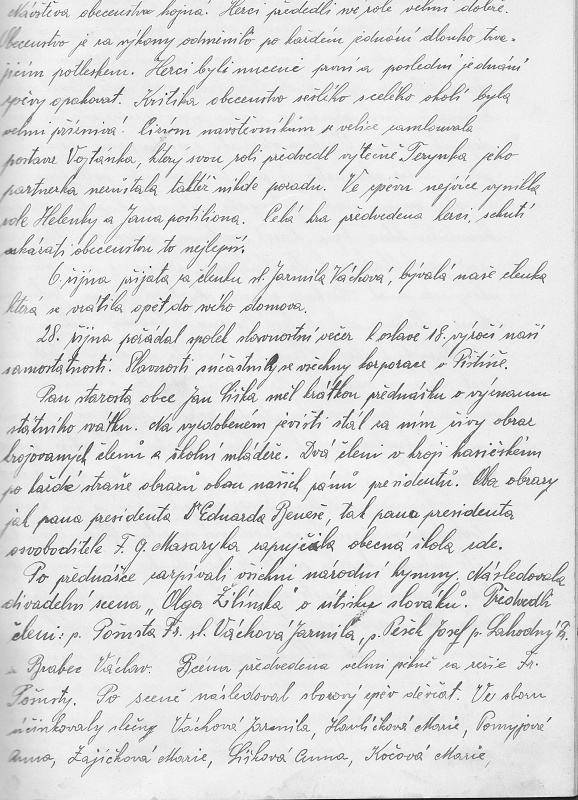 Návštěva obecenstva hojná. Herci předvedli své role velmi dobře.
Obecenstvo je za výkony odměnilo po každém jednání dlouho trva-
jícím potleskem. Herci byli nuceni první a poslední jednání
zpěvy opakovat. Kritika obecenstva sešlého z celého okolí byla
velmi příznivá. Cizím navštěvníkům se velice zamlouvala
postava Vojtánka, který svou roli předvedl výtečně Terynka jeho
partnerka nezůstala taktéž nikde pozadu. Ve zpěvu nejvíce vynikla
role Helenky a Jana postiliona. Celá hra předvedena herci, s chutí
ukázati obecenstvu to nejlepší.
6. října přijata za členku sl. Jarmila Váchová, bývalá naše členka
která se vrátila opět do svého domova.
28. října pořádal spolek slavnostní večer k oslavě 18. výročí naší
samostatnosti. Slavnosti súčastnily se všechny korporace v Pištíně.
Pan starosta obce Jan Liška měl krátkou přednášku o významu
státního svátku. Na vyzdobeném jevišti stál za ním živý obraz
krojovaných členů a školní mládeže. Dvá členi v kroji hasičském
po každé straně obrazů obou našich pánů presidentů. Oba obrazy
jak pana presidenta Dr Eduarda Beneše, tak pana presidenta
osvoboditele T. G. Masaryka zapujčila obecná škola zde.
Po přednášce zazpívali všichni národní hymny. Následovala
divadelní scena „Olga Žilinská" o útisku slováků. Předvedli
členi: p. Pošusta Fr. sl. Váchová Jarmila, p. Pešek Josef p. Lahodný Fr.
a Brabec Václav. Scéna předvedena velmi pěkně za režie Fr.
Pošusty. Po sceně následoval sborový zpěv děvčat. Ve sboru
účinkovaly slečny Váchová Jarmila, Havlíčková Marie, Pomyjová
Anna, Zajíčková Marie, Lišková Anna, Kočová Marie,